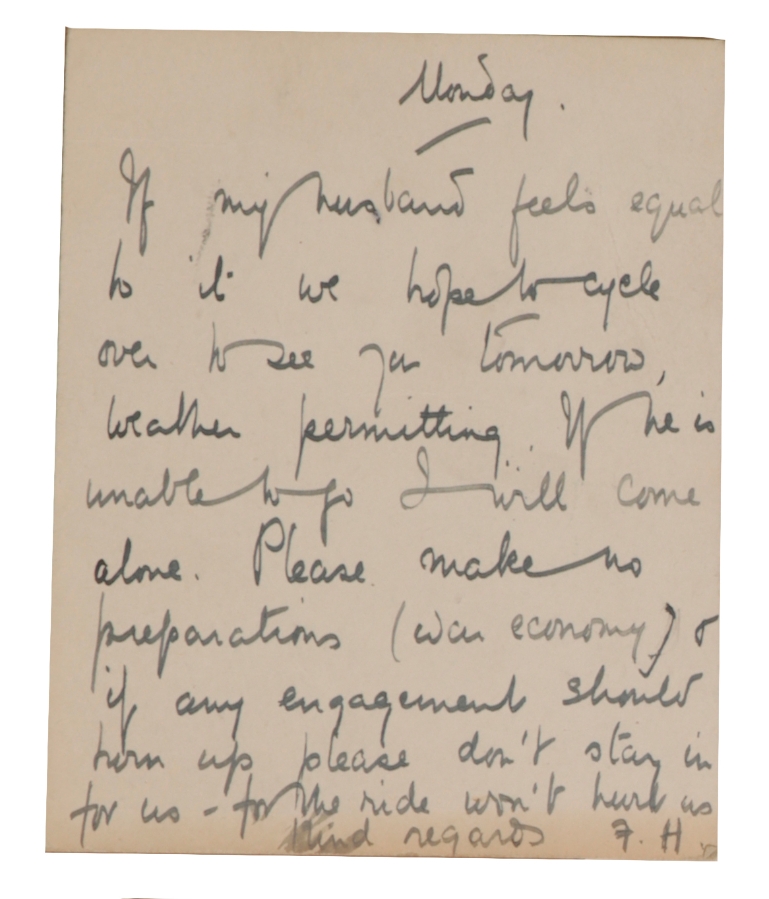 Monday.
If my husband feels equal
to it we hope to cycle
over to see you tomorrow,
weather permitting. If he is
unable to go I will come
alone. Please make no
preparations (war economy) &
if any engagement should
turn up please don't stay in
for us - for the ride won't hurt us
Kind regards F. H.